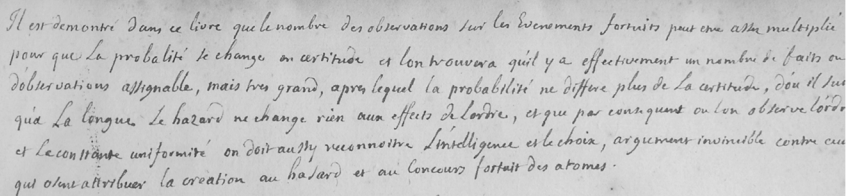 Il est demontré dans ce livre que le nombre des observations sur les Evenements fortuits peut etre assez multiplié
pour que La probalité se change en certitude et lon trouvera qu'il y a effectivement un nombre de faits ou
d'observations assignable, mais tres grand, apres lequel la probabilité ne differe plus de La certitude, d'ou il suit
qu'a La longue Le hazard ne change rien aux effects de Lordre, et que par consequent ou lon observe l'ordre
et La constante uniformité on doit aussy reconnoitre L'intelligense et le choix, argument invincible contre ceux
qui osent attribuer la creation au hasard et au concours fortuit des atomes.